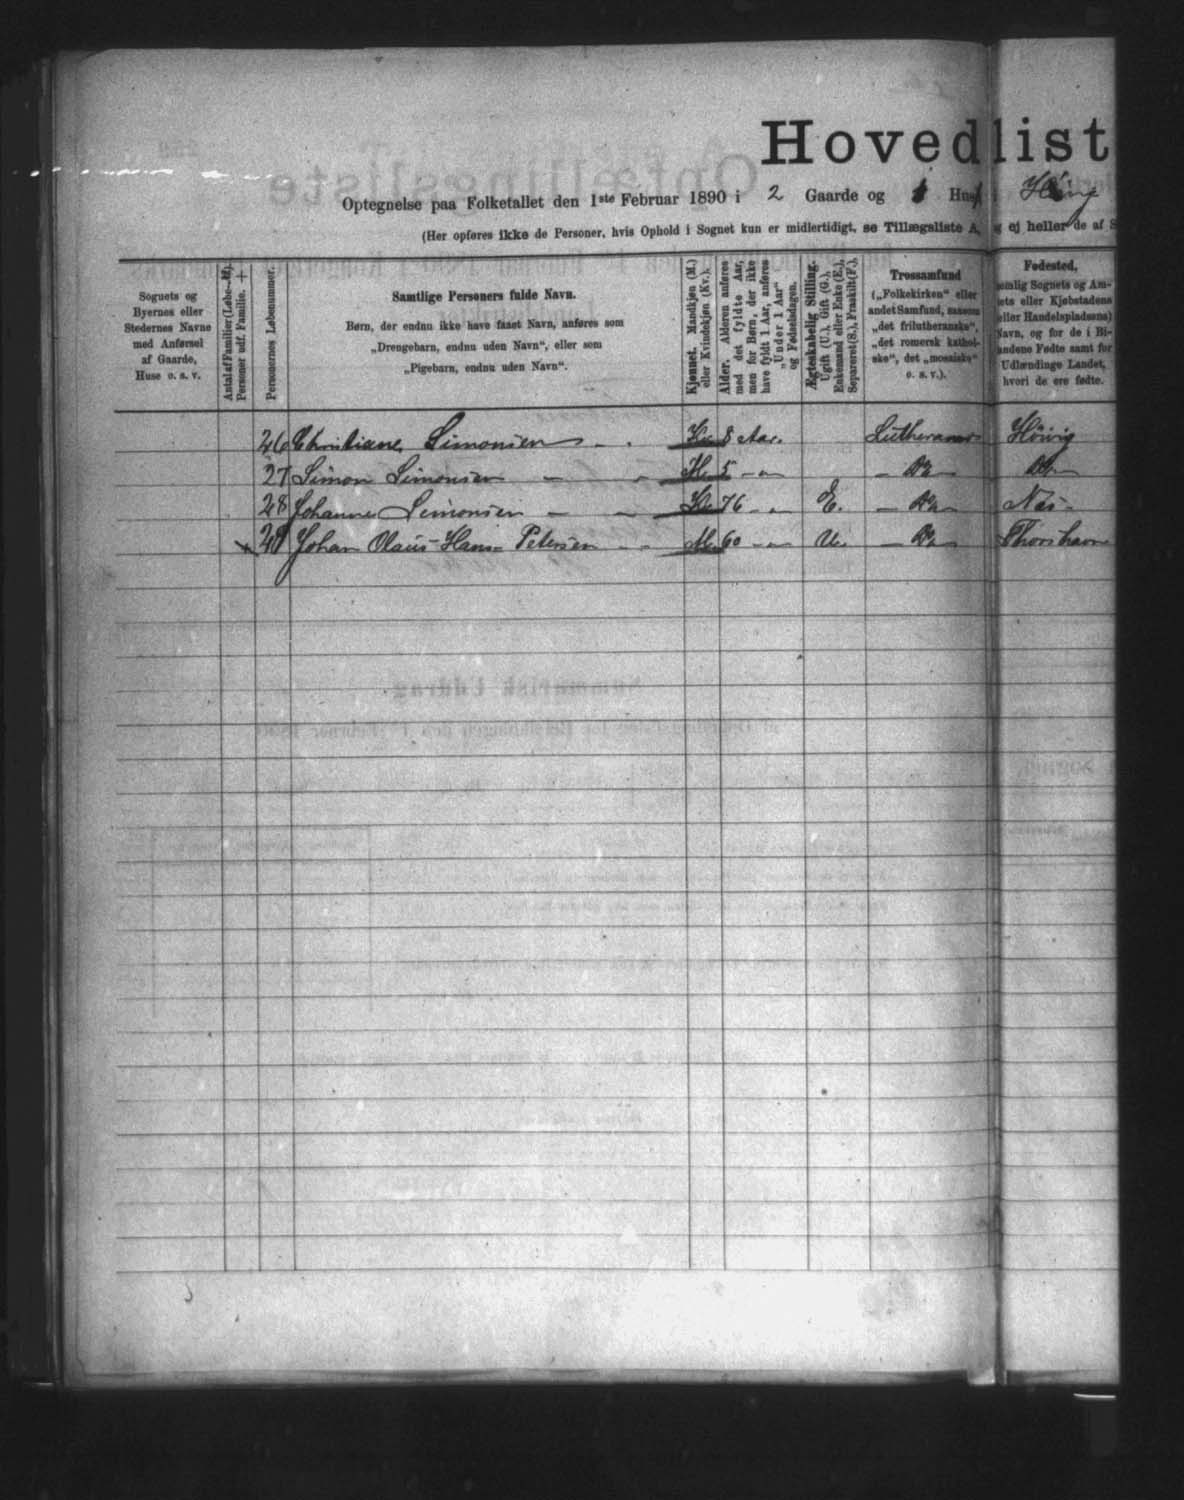 Hovedlist
Optegnelse paa Folketallet den 1ste Februar 1890 i 2 Gaarde og 1 Hus i
(Her opføres ikke de Personer, hvis Ophold i Sognet kun er midlertidigt, se Tillægsliste A, og ej heller de af S
Sognets og
Byernes eller
Stedernes Navne
med Anførsel
af Gaarde,
Huse o. s. v.
Antal af Familier (Løbe-№).
Personer udf. Familie. +
Personernes Løbenummer.
Samtlige Personers fulde Navn.
Børn, der endnu ikke have faaet Navn, anføres som
„Drengebarn, endnu uden Navn“, eller som
„Pigebarn, endnu uden Navn“.
Kjønnet. Mandkjøn (M.)
eller Kvindekjøn (Kv.).
Alder. Alderen anføres
med det fyldte Aar,
men for Børn, der ikke
have fyldt 1 Aar, anføres
„Under 1 Aar“
og Fødselsdagen.
Ægteskabelig Stilling.
Ugift (U.), Gift (G.),
Enkemand eller Enke (E.),
Separeret (S.), Fraskilt (F.).
Trossamfund
(„Folkekirken“ eller
andet Samfund, saasom
„det frilutheranske“,
„det romersk kathol-
ske“, det „mosaiske“
o. s. v.).
Fødested,
nemlig Sognets og Am-
tets eller Kjøbstadens
(eller Handelspladsens)
Navn, og for de i Bi-
landene Fødte samt for
Udlændinge Landet,
hvori de ere fødte.
26 Christiane Simonsen - . Kv. 8 Aar. Høivig
27 Simon Simonsen - - M. 5 - - - Do - Do -
28 Johanne Simonsen - - Kv. 76 - - E. - Do - Næs -
29 Johan Olaus Hans Petersen - - M. 60 - - U. - Do - Thorshavn